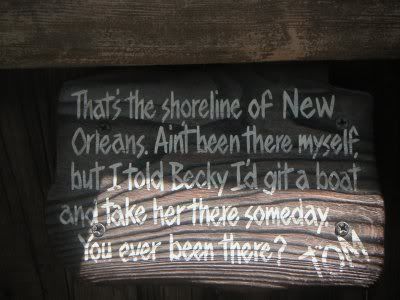 That's the shoreline of New
Orleans. Ain't been there myself,
but I told Becky I'd git a boat
and take her there someday.
You ever been there? TOM